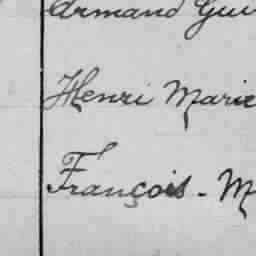 Armand Gui
Henri Marie
François - M